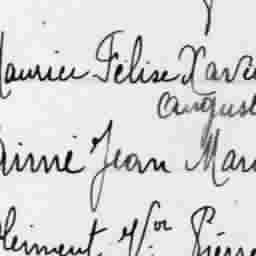 Maurice Félise Xavi
August
Aimé Jean Mari
Clément, Vor Pierre